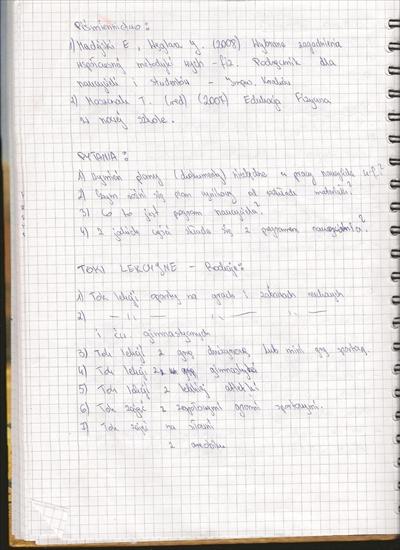 Piśmiennictwo:
1) Madejski E., Węglarz J. (2008) Wybrane zagadnienia
współczesnej metodyki wych-fiz. Podręcznik dla
nauczycieli i studentów - Impuls Kraków
2) (red) (2007) Edukacja Fizyczna
w nowej szkole.
PYTANIA:
1) Wymień plany (dokumenty) niezbędne w pracy nauczyciela w-f?
2) Czym różni się plan wynikowy od rozkładu materiału?
3) Co to jest program nauczania?
4) Z jakich części składa się z programem nauczania?
TOKI LEKCYJNE - Rodzaje:
1) Tok lekcji oparty na grach i zabawach ruchowych
2) — 11 — 11 — 11 —
i ćw. gimnastycznych
3) Tok lekcji z grą drużynową lub mini grą sportową
4) Tok lekcji z gimnastyki
5) Tok lekcji z lekkiej atletyki
6) Tok zajęć z zespołowymi grami sportowymi.
7) Tok zajęć na siłowni
z aerobiku